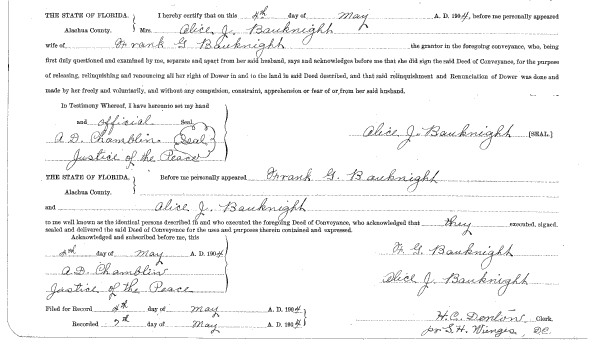 THE STATE OF FLORIDA. } I hereby certify that on this 4th day of May A. D. 1904, before me personally appeared
Alachua County. Mrs. Alice J. Bauknight
wife of Frank G. Bauknight the grantor in the foregoing conveyance, who, being
first duly questioned and examined by me, separate and apart from her said husband, says and acknowledges before me that she did sign the said Deed of Conveyance, for the purpose
of releasing, relinquishing and renouncing all her right of Dower in and to the land in said Deed described, and that said relinquishment and Renunciation of Dower was done and
made by her freely and voluntarily, and without any compulsion, constraint, apprehension or fear of or from her said husband.
In Testimony Whereof, I have hereunto set my hand
and official Seal
A. D. Chamblin Seal
Justice of the Peace
Alice J. Bauknight [SEAL]
THE STATE OF FLORIDA. } Before me personally appeared Frank G. Bauknight
Alachua County.
and Alice J. Bauknight
to me well known as the identical persons described in and who executed the foregoing Deed of Conveyance, who acknowledged that they executed, signed,
sealed and delivered the said Deed of Conveyance for the uses and purposes therein contained and expressed.
Acknowledged and subscribed before me, this
4th day of May A. D. 1904
A. D. Chamblin
Justice of the Peace
F. G. Bauknight
Alice J. Bauknight
Filed for Record 4th day of May A. D. 1904
Recorded 7th day of May A. D. 1904
H. C. Denton Clerk.
pr S. H. Wienges, D.C.